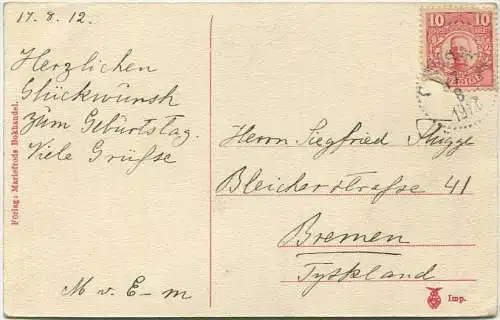 17. 8. 12.
Herzlichen
Glückwunsh
zum Geburtstag.
Viele Grüsse
M v. E – m
Förlag: Mariefreds Bokhandel.
10 10
1912
Herrn Siegfried Flügge
Bleicherstrasse 41
Bremen
Tyskland
Imp.